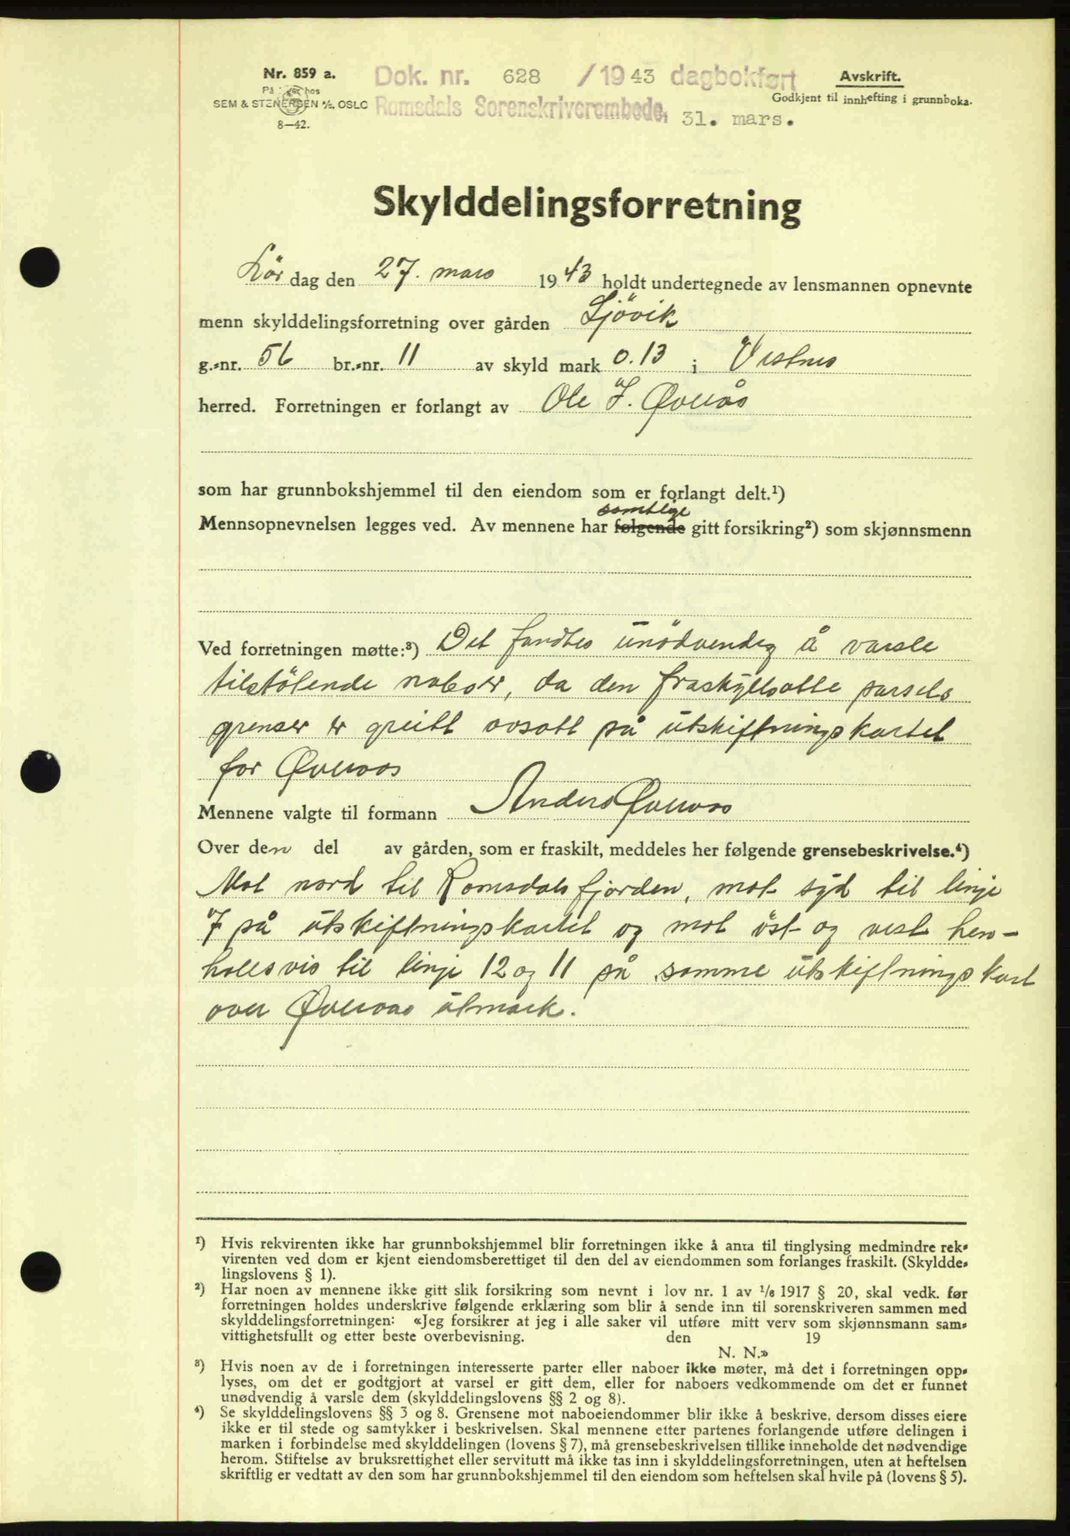 Nr. 859 a.
På lager hos
SEM & STENERSEN A/S, OSLO
8—42.
Dok. nr. 628 /1943 dagbokført
Romsdals Sorenskriverembede, 31. mars.
Avskrift.
Godkjent til innhefting i grunnboka.
Skylddelingsforretning
Lør dag den 27. mars 1943 holdt undertegnede av lensmannen opnevnte
menn skylddelingsforretning over gården Sjövik
g.-nr. 56 br.-nr. 11 av skyld mark 0.13 i Vestnes
herred. Forretningen er forlangt av Ole J. Øverås
som har grunnbokshjemmel til den eiendom som er forlangt delt.¹)
samtlige
Mennsopnevnelsen legges ved. Av mennene har følgende gitt forsikring²) som skjønnsmenn
Ved forretningen møtte:³) Det fandtes unödvendig å varsle
tilstölende naboer, da den fraskyllsatte parsels
grenser er greitt avsatt på utskiftningskartet
for Øveraas
Mennene valgte til formann Anders Øveraas
Over den del av gården, som er fraskilt, meddeles her følgende grensebeskrivelse.⁴)
Mot nord til Romsdalsfjorden, mot syd til linje
7 på utskiftningskartet og mot öst og vest hen-
holdsvis til linje 12 og 11 på samme utskiftningskart
over Øveraas utmark.
¹) Hvis rekvirenten ikke har grunnbokshjemmel blir forretningen ikke å anta til tinglysing medmindre rek-
virenten ved dom er kjent eiendomsberettiget til den del av eiendommen som forlanges fraskilt. (Skyldde-
lingslovens § 1).
²) Har noen av mennene ikke gitt slik forsikring som nevnt i lov nr. 1 av 1/6 1917 § 20, skal vedk. før
forretningen holdes underskrive følgende erklæring som blir å sende inn til sorenskriveren sammen med
skylddelingsforretningen: «Jeg forsikrer at jeg i alle saker vil utføre mitt verv som skjønnsmann sam-
vittighetsfullt og etter beste overbevisning. den 19
N. N.»
³) Hvis noen av de i forretningen interesserte parter eller naboer ikke møter, må det i forretningen opp-
lyses, om det er godtgjort at varsel er gitt dem, eller for naboers vedkommende om det er funnet
unødvendig å varsle dem (skylddelingslovens §§ 2 og 8).
⁴) Se skylddelingslovens §§ 3 og 8. Grensene mot naboeiendommer blir ikke å beskrive, dersom disses eiere
ikke er til stede og samtykker i beskrivelsen. Skal mennene etter partenes forlangende utføre delingen i
marken i forbindelse med skylddelingen (lovens § 7), må grensebeskrivelsen tillike inneholde det nødvendige
herom. Stiftelse av bruksrettighet eller servitutt må ikke tas inn i skylddelingsforretningen, uten at heftelsen
skriftlig er vedtatt av den som har grunnbokshjemmel til den eiendom som heftelsen skal hvile på (lovens § 5).